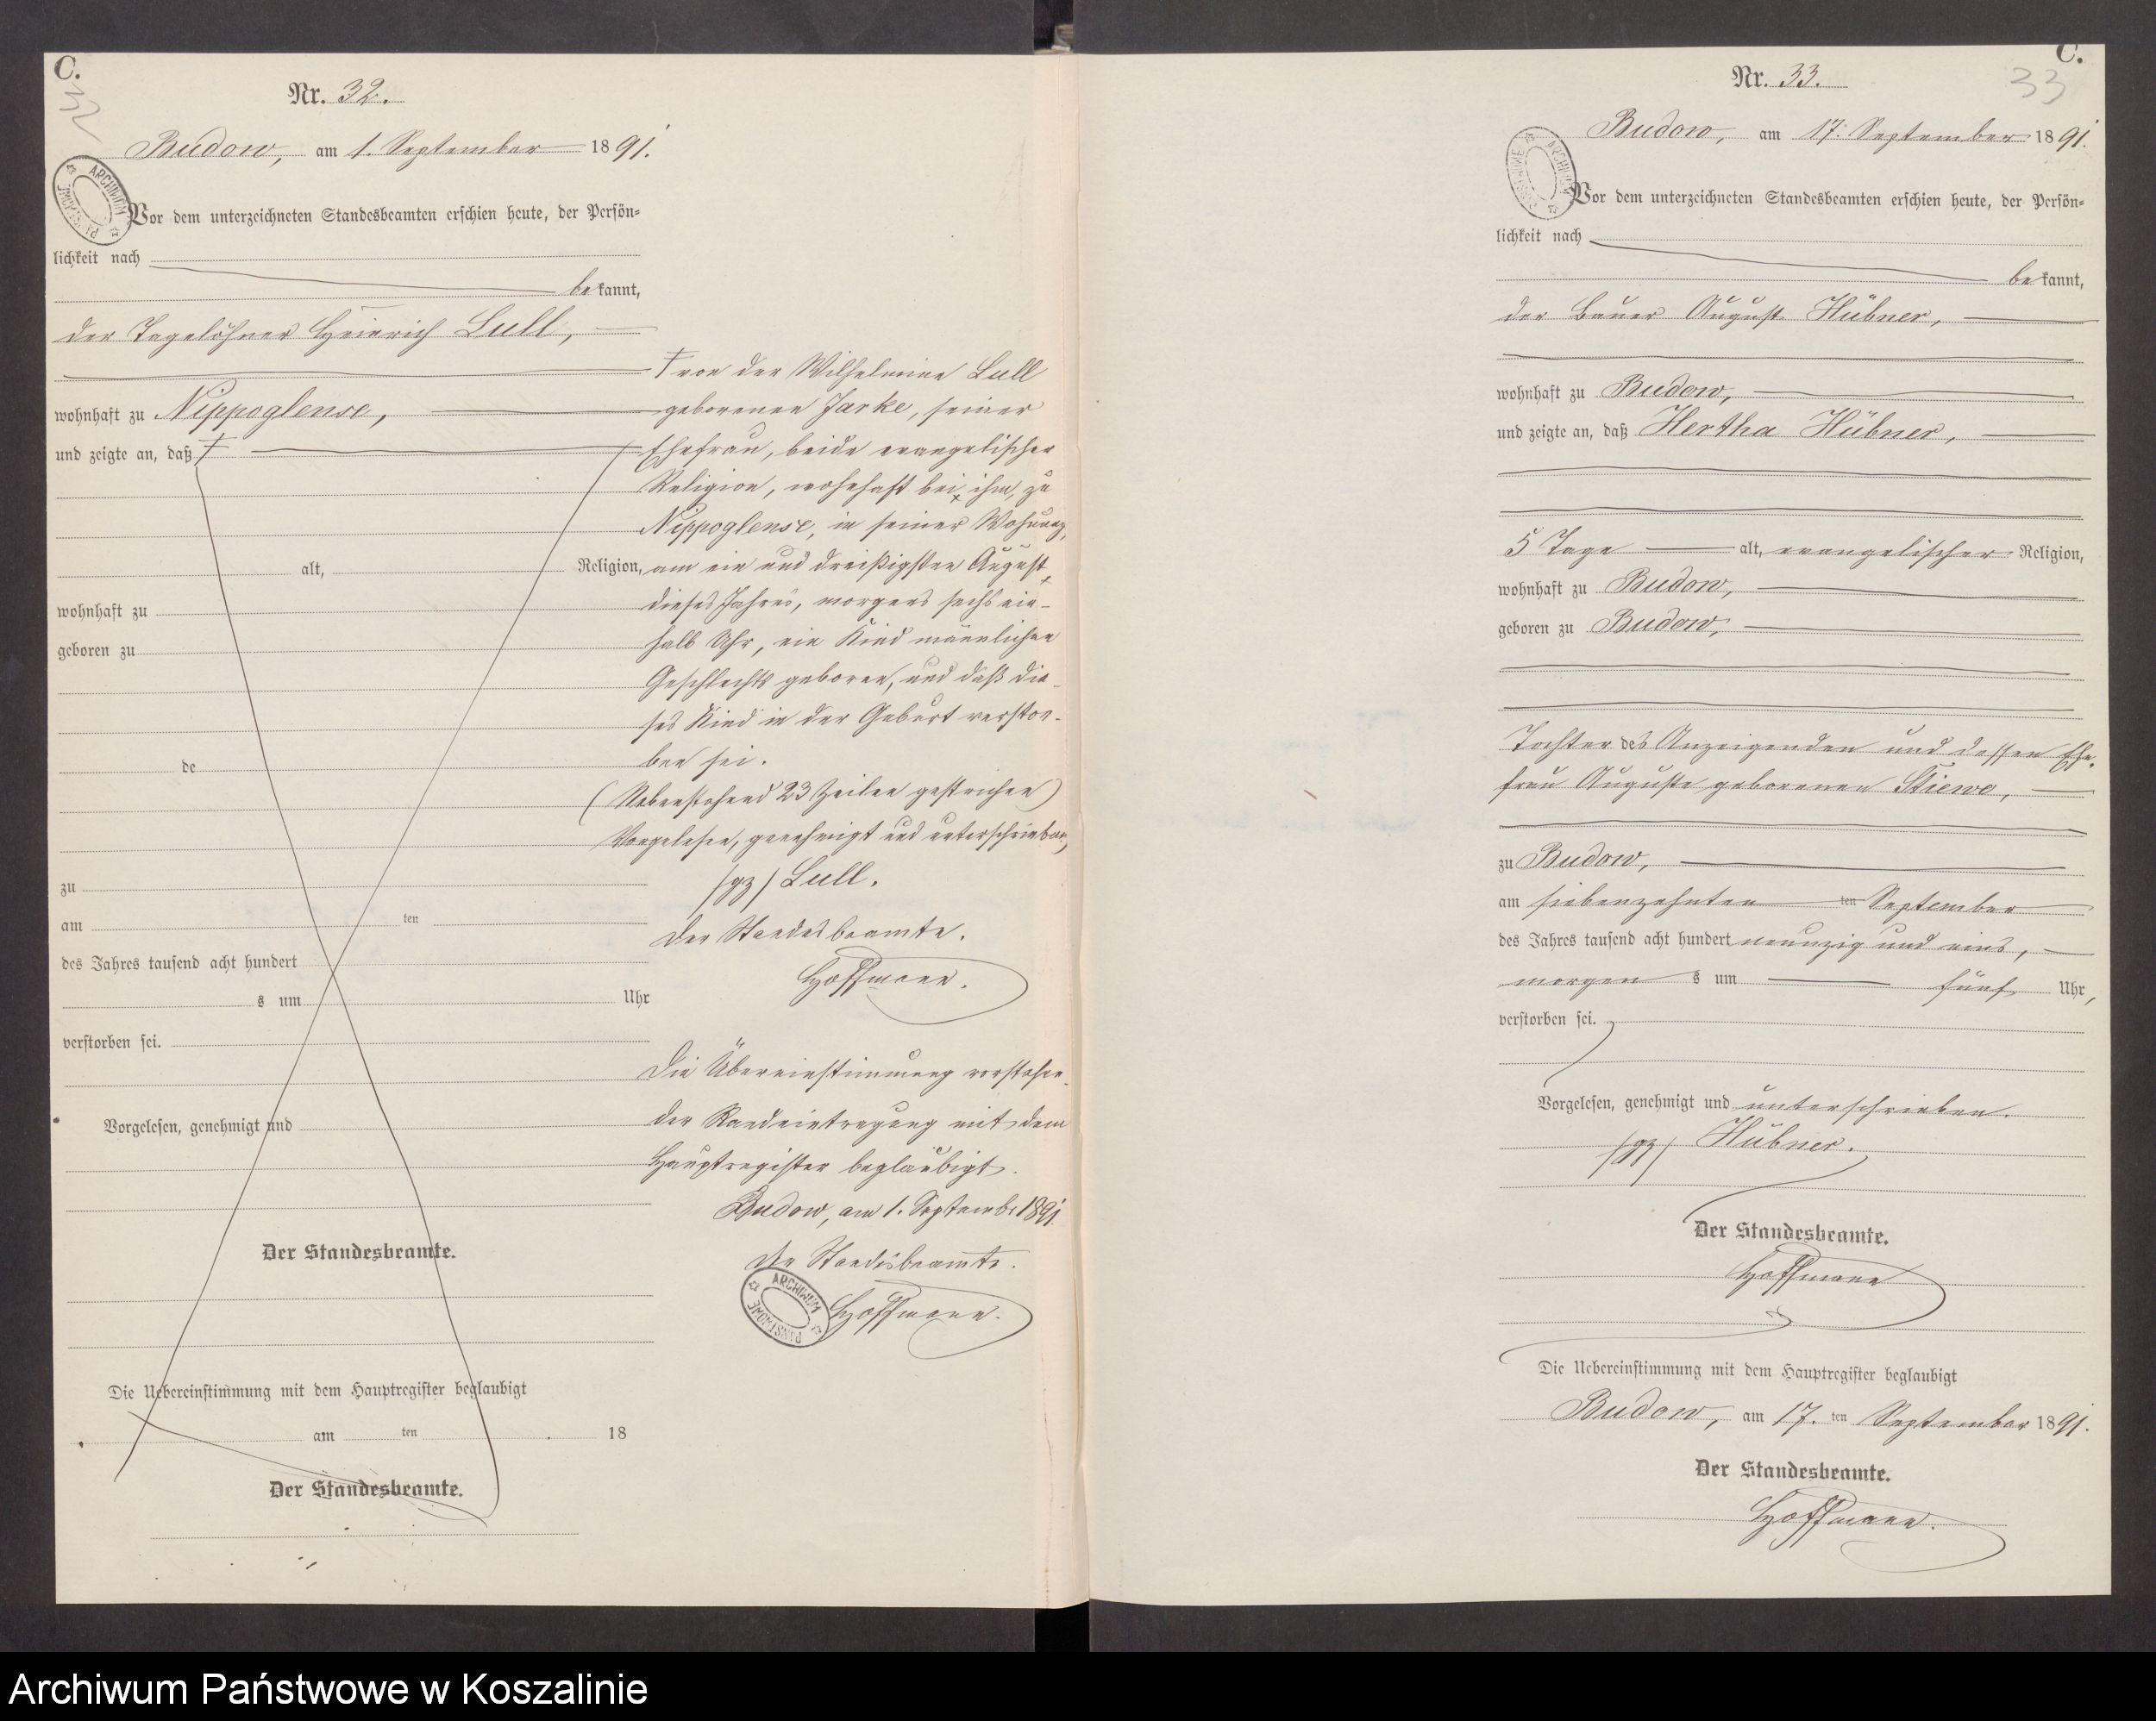 C.
32
Nr. 32.
Budow, am 1. September 1891.
ARCHIWUM PAŃSTWOWE
Vor dem unterzeichneten Standesbeamten erschien heute, der Persön=
lichkeit nach
bekannt,
der Tagelöhner Heinrich Lull,
wohnhaft zu Nippoglense,
und zeigte an, daß ‡
alt, Religion,
wohnhaft zu
geboren zu
de
zu
am ten
des Jahres tausend acht hundert
s um Uhr
verstorben sei.
Vorgelesen, genehmigt und
Der Standesbeamte.
Die Uebereinstimmung mit dem Hauptregister beglaubigt
am ten 18
Der Standesbeamte.
‡ von der Wilhelmine Lull
geborenen Jarke, seiner
Ehefrau, beide evangelischer
Religion, wohnhaft bei ihm, zu
Nippoglense, in seiner Wohnung,
am ein und dreißigsten August
dieses Jahres, morgens sechs ein-
halb Uhr, ein Kind männlichen
Geschlechts geboren, und daß die-
ses Kind in der Geburt verstor-
ben sei.
(Nebenstehend 23 Zeilen gestrichen)
Vorgelesen, genehmigt und unterschrieben,
/gz/ Lull.
Der Standesbeamte.
Hoffmann.
Die Übereinstimmung vorstehen-
der Randeintragung mit dem
Hauptregister beglaubigt.
Budow, am 1. September 1891.
Der Standesbeamte.
ARCHIWUM PAŃSTWOWE
Hoffmann.
C.
33
Nr. 33.
Budow, am 17. September 1891.
ARCHIWUM PAŃSTWOWE
Vor dem unterzeichneten Standesbeamten erschien heute, der Persön=
lichkeit nach
bekannt,
der Bauer August Hübner,
wohnhaft zu Budow,
und zeigte an, daß Hertha Hübner,
5 Tage alt, evangelischer Religion,
wohnhaft zu Budow,
geboren zu Budow,
Tochter des Anzeigenden und dessen Ehe-
frau Auguste geborenen Stiewe,
zu Budow,
am siebenzehnten ten September
des Jahres tausend acht hundert neunzig und eins,
morgen s um fünf Uhr,
verstorben sei.
Vorgelesen, genehmigt und unterschrieben.
/gz/ Hübner.
Der Standesbeamte.
Hoffmann
Die Uebereinstimmung mit dem Hauptregister beglaubigt
Budow, am 17. ten September 1891.
Der Standesbeamte.
Hoffmann.
Archiwum Państwowe w Koszalinie